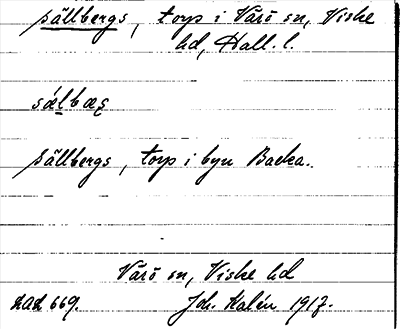 Sällbergs, torp i Värö sn, Viske
hd, Hall. l.
sælbæs
Sällbergs, torp i byn Backa.
Värö sn, Viske hd
Lad 669. Joh. Kalén 1917.